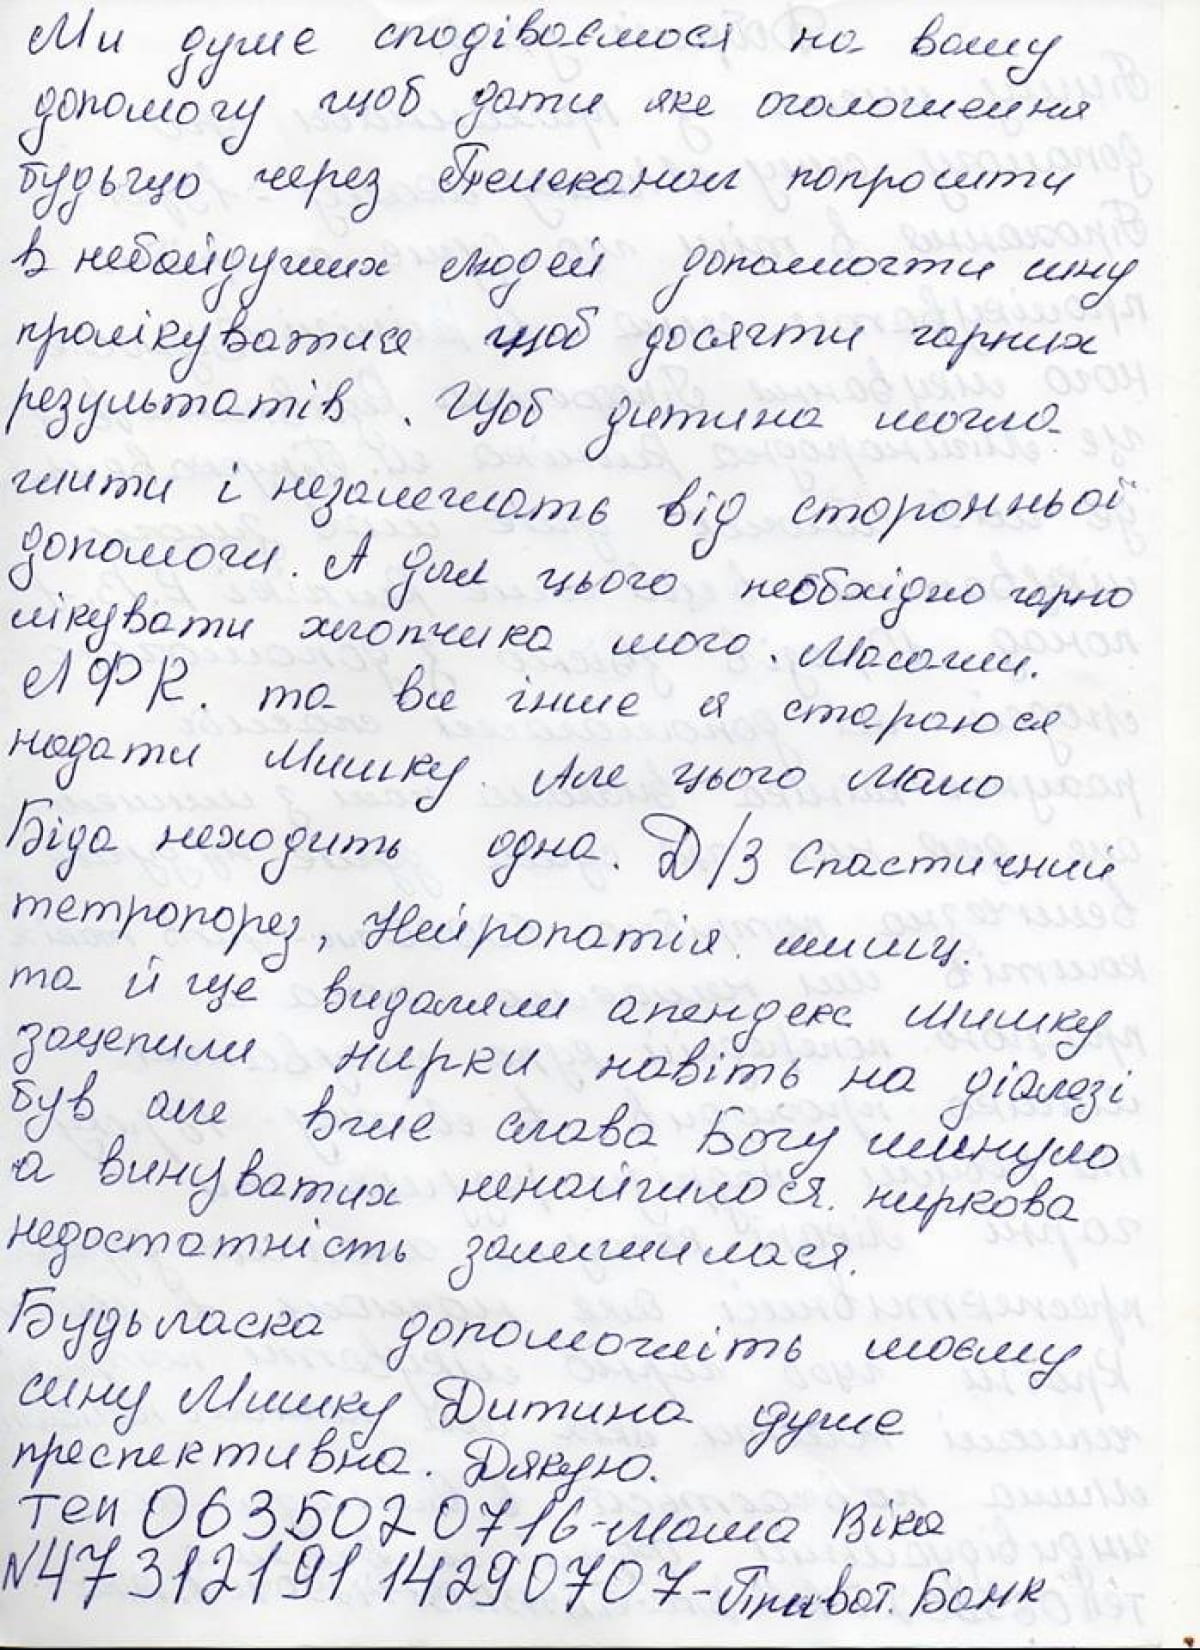 Ми дуже сподіваємося на вашу
допомогу щоб дати яке оголошення
будьщо через Телеканал попросити
в небайдужих людей допомогти сину
пролікуватися щоб досягти гарних
результатів. Щоб дитина могла
жити і незалежать від сторонньої
допомоги. А для цього необхідно гарно
лікувати хлопчика мого. Масажи.
ЛФК. та все інше я стараюся
надати Мишку. Але цього мало
Біда неходить одна. Д/З Спастичний
тетропорез, Нейропатія. мишц.
та й ще видаляли апендекс Мишку
зацепили нирки навіть на діалезі
був але вже слава Богу минуло
а винуватих ненайшлося. ниркова
недостатність залишилася.
Будьласка допоможіть моєму
сину Мишку Дитина дуже
преспективна. Дякую.
тел 0635020716-Мама Віка
№4731219114290707-Приват. Банк